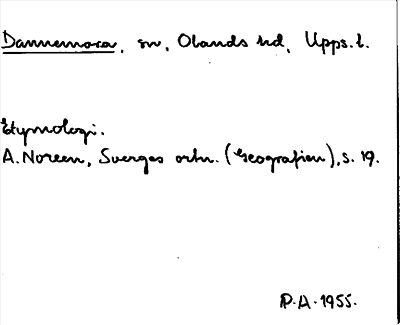 Dannemora, sn, Olands hd, Upps. l.
Etymologi.
A. Noreen, Sveriges ortn. (Geografien), s. 19.
P.A. 1955.